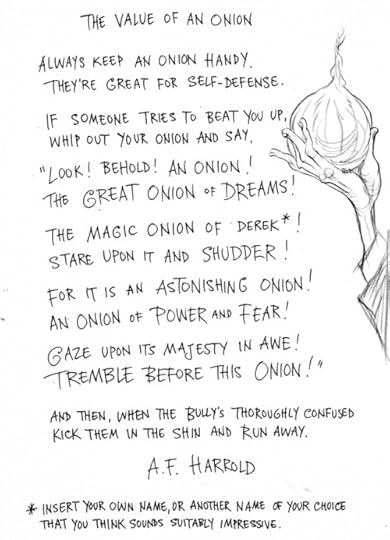 THE VALUE OF AN ONION
ALWAYS KEEP AN ONION HANDY.
THEY'RE GREAT FOR SELF-DEFENSE.
IF SOMEONE TRIES TO BEAT YOU UP,
WHIP OUT YOUR ONION AND SAY,
"LOOK! BEHOLD! AN ONION!
THE GREAT ONION OF DREAMS!
THE MAGIC ONION OF DEREK*!
STARE UPON IT AND SHUDDER!
FOR IT IS AN ASTONISHING ONION!
AN ONION OF POWER AND FEAR!
GAZE UPON ITS MAJESTY IN AWE!
TREMBLE BEFORE THIS ONION!"
AND THEN, WHEN THE BULLY'S THOROUGHLY CONFUSED
KICK THEM IN THE SHIN AND RUN AWAY.
A.F. HARROLD
* INSERT YOUR OWN NAME, OR ANOTHER NAME OF YOUR CHOICE
THAT YOU THINK SOUNDS SUITABLY IMPRESSIVE.